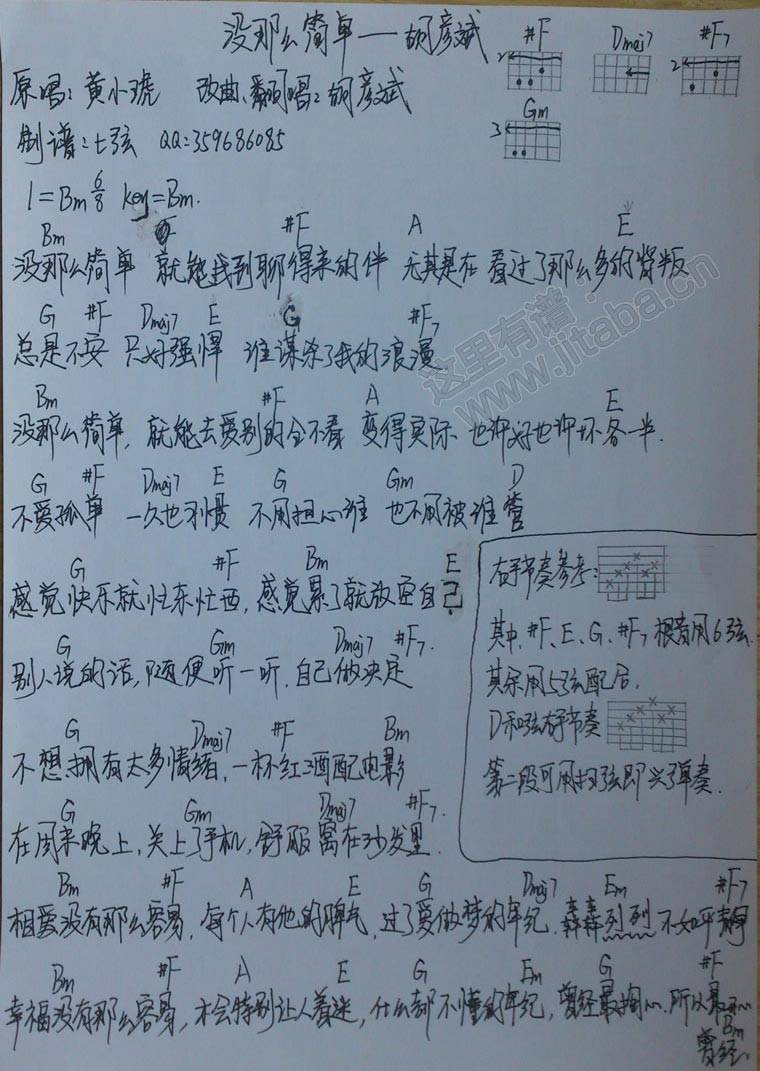 没那么简单——胡彦斌
#F Dmaj7 #F7
2 2
原唱：黄小琥 改曲、翻唱：胡彦斌
Gm
3
制谱：七弦 QQ：359686085
1=Bm 6/8 key=Bm.
Bm #F A E
没那么简单 就能找到聊得来的伴 尤其是在 看过了那么多的背叛
G #F Dmaj7 E G #F7
总是不安 只好强悍 谁谋杀了我的浪漫.
这里有谱·
www.jitaba.cn
Bm #F A E
没那么简单, 就能去爱别的全不看 变得实际 也许好也许坏各一半.
G #F Dmaj7 E G Gm D
不爱孤单 一久也习惯 不用担心谁 也不用被谁管
G #F Bm E
感觉快乐就忙东忙西, 感觉累了就放空自己
G Gm Dmaj7 #F7.
别人说的话, 随便听一听. 自己做决定
G Dmaj7 #F Bm
不想拥有太多情绪, 一杯红酒配电影
G Gm Dmaj7 #F7.
在周末晚上, 关上了手机, 舒服窝在沙发里.
右手节奏参考：
其中, #F、E、G、#F7 根音用6弦.
其余用5弦配合,
D和弦右手节奏
第二段可用扫弦即兴弹奏.
Bm #F A E G Dmaj7 Em #F7
相爱没有那么容易, 每个人有他的脾气, 过了爱做梦的年纪. 轰轰烈烈 不如平静
Bm #F A E G Em G #F
幸福没有那么容易, 才会特别让人着迷, 什么都不懂的年纪, 曾经最掏心. 所以最开心
Bm
曾经.